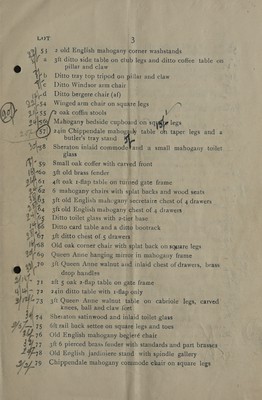 LOT
3
51 2 old English mahogany corner washstands
a 3ft ditto side table on club legs and ditto coffee table on
pillar and claw
b Ditto tray top tripod on pillar and claw
c Ditto Windsor arm chair
d Ditto bergere chair (af)
54 Winged arm chair on square legs
55 2 oak coffin stools
56 Mahogany bedside cupboard on square legs
57 24in Chippendale mahogany table on taper legs and a
butler's tray stand
58 Sheraton inlaid commode and a small mahogany toilet
glass
59 Small oak coffer with carved front
60 3ft old brass fender
61 4ft oak 2-flap table on turned gate frame
62 6 mahogany chairs with splat backs and wood seats
63 3ft old English mahogany secretaire chest of 4 drawers
64 3ft old English mahogany chest of 4 drawers
65 Ditto toilet glass with 2-tier base
66 Ditto card table and a ditto bootrack
67 3ft ditto chest of 5 drawers
68 Old oak corner chair with splat back on square legs
69 Queen Anne hanging mirror in mahogany frame
70 3ft Queen Anne walnut and inlaid chest of drawers, brass
drop handles
71 4ft oak 2-flap table on gate frame
72 24in ditto table with 1-flap only
73 3ft Queen Anne walnut table on cabriole legs, carved
knees, ball and claw feet
74 Sheraton satinwood and inlaid toilet glass
75 6ft rail back settee on square legs and toes
76 Old English mahogany begleré chair
77 3ft 6 pierced brass fender with standards and part brasses
78 Old English jardiniere stand with spindle gallery
79 Chippendale mahogany commode chair on square legs